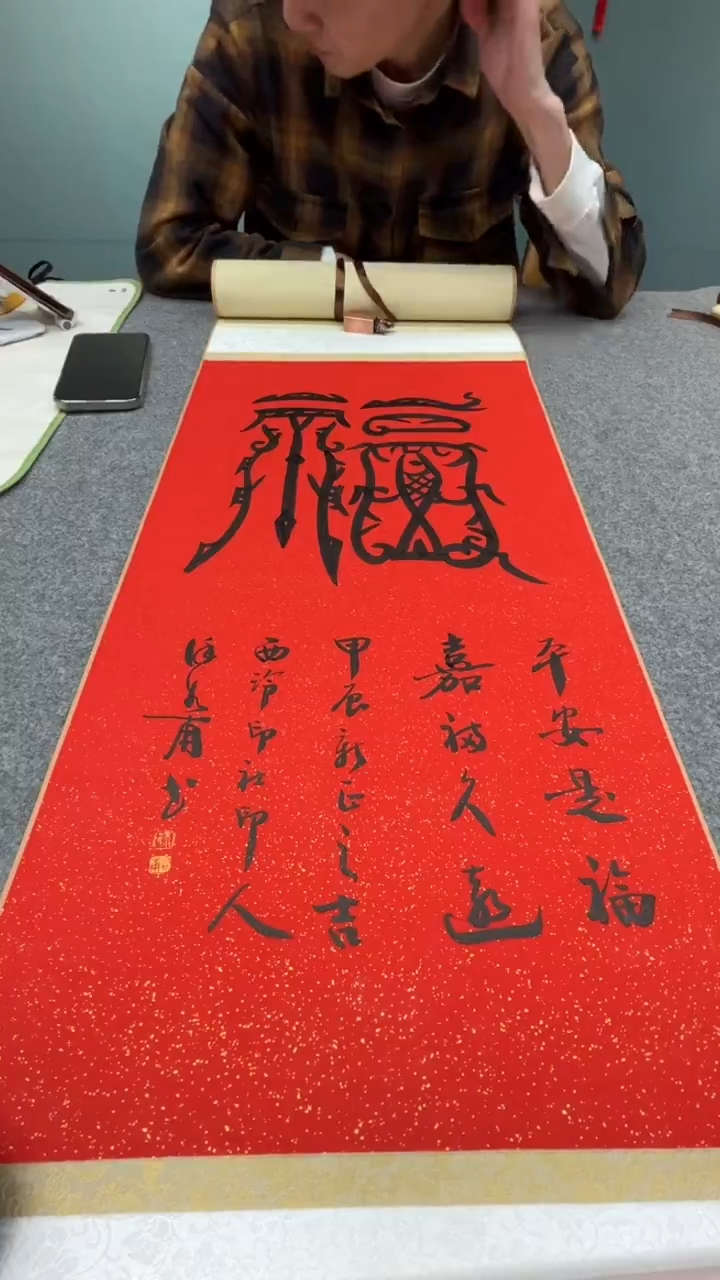 福
平安是福
嘉福久远
甲辰新正之吉
西泠印社印人